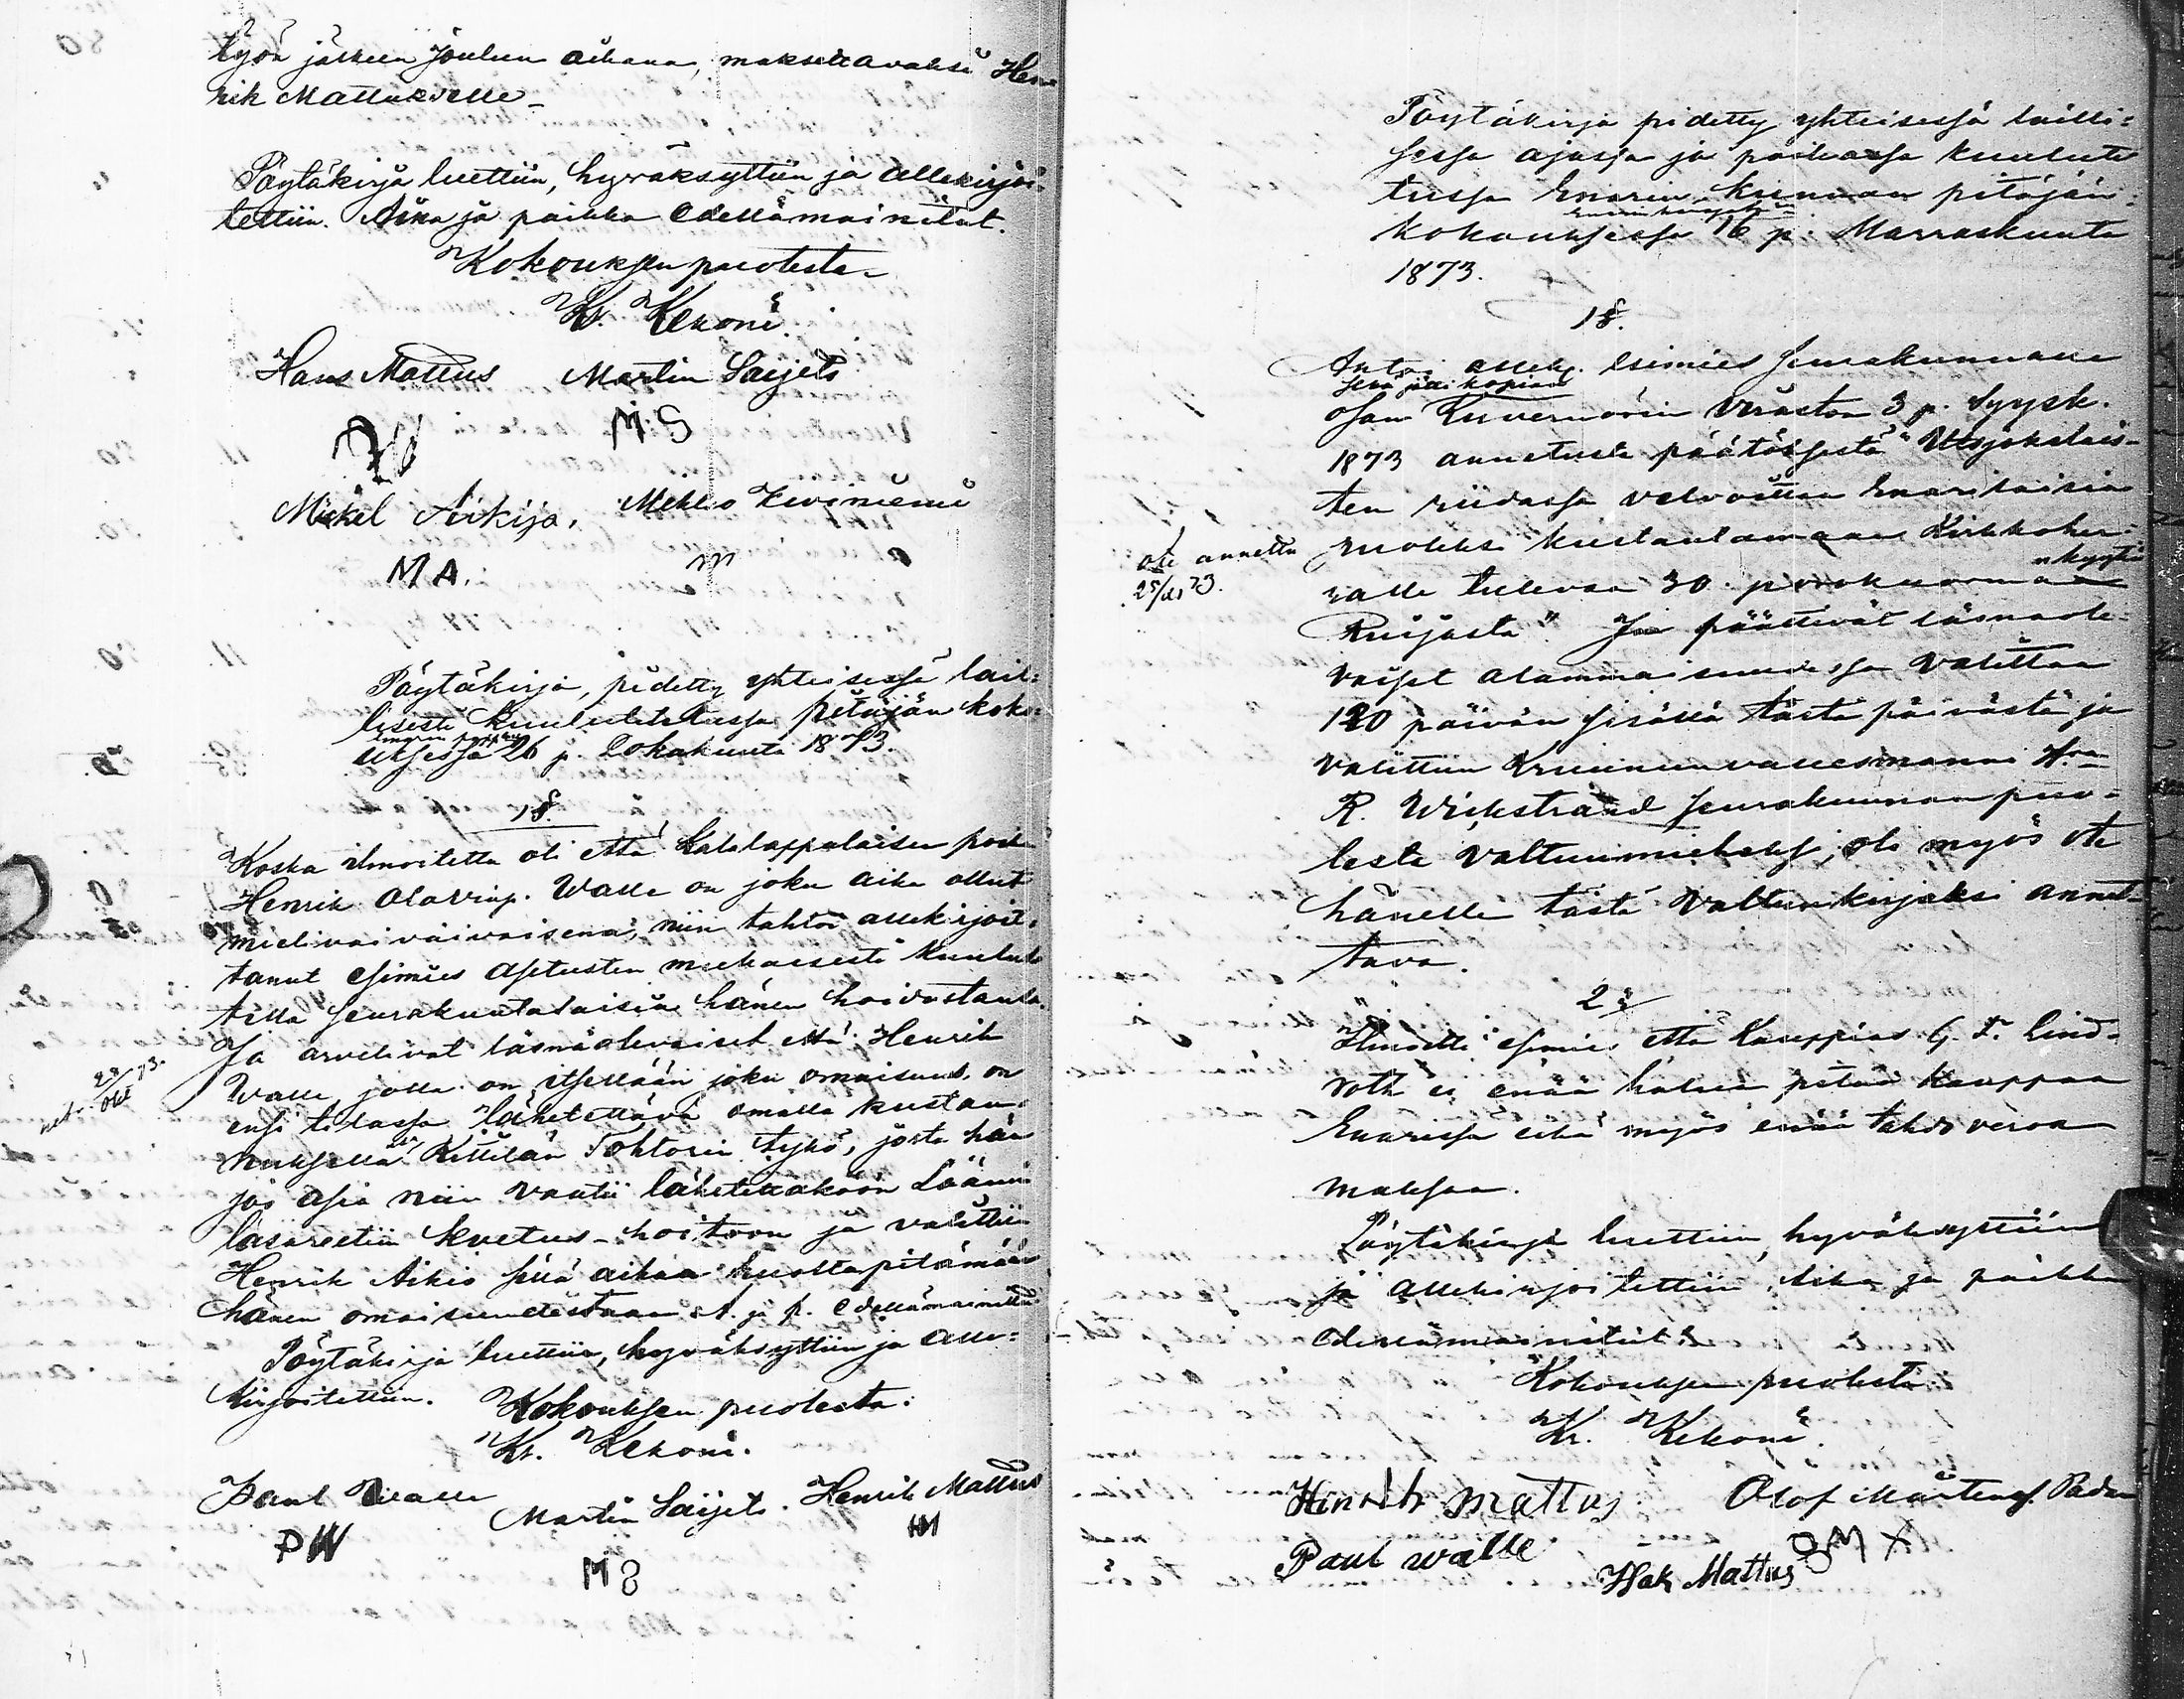 työn jälkeen Joulun aikana, maksettavaksi Hen
rik Mattukselle
Pöytäkirja luettiin, hyväksyttiin ja allekirjoi-
tettiin. Aika ja paikka edellämainitut.
Kokouksen puolesta
Kr. Kekoni.
Hans Mattus Martin Saijets
M S
Mickel Aikijo, Mikko Kiviniemi
M A. m
Pöytäkirja, pidetty yhteisessä lail-
lisesti kuulutetussa pitäjän koko-
Enarin pappilassa
uksessa 26 p. Lokakuuta 1873.
1 §.
Koska ilmoitettu oli että Kalalappalaisen poika
Henrik Olavinp. Walle on joku aika ollut
mielivaivaisena, niin tahtoi allekirjoit-
tanut esimies asetusten mukaisesti kuulus
tella seurakuntalaisia hänen hoidostansa.
Ja arvelivat läsnäolevaiset että Henrik
Walle, jolla on itsellään joku omaisuus, on
ensi tilassa lähetettävä omalla kustan-
nuksella Kittilän Tohtorin tykö, josta hän
jos asia niin vaatii lähetettäköön Läänin
lasarettiin kuetus-hoitoon ja valittiin
Henrik Aikio sillä aikaa huolta pitämään
hänen omaisuudestaan. A. ja p. edellämainitut
Pöytäkirja luettiin, hyväksyttiin ja alle-
kirjoitettiin. Kokouksen puolesta:
Kr. Kekoni.
Paul Walle Martin Saijets. Henrik Mattus
P W M S HM
Pöytäkirja pidetty yhteisessä lailli-
sessa ajassa ja paikassa kuulute
tussa Enarin kunnan pitäjän-
kokouksessa 16 p. Marraskuuta
1873.
1 §.
Antoi allek. esimies seurakunnalle
osan Kuvernöörin viraston 3 p. Syysk.
1873 annetusta päätöksestä "Utsjokelais-
ten riidassa velvoittaa Enarilaisia
ote annettu
25/11 73.
vuoksi kustantamaan Kirkkoher-
n kyytiä
ralle tulevaa 30 porokuormaa
Ruijasta". Ja päättivät läsnäole-
vaiset alammaisuudessa valittaa
120 päivän sisällä tästä päivästä ja
valittiin Kruununvallesmanni
R. Wickstrand seurakunnan puo-
lesta valtuumieheksi, oli myös ote
hänelle tästä valtuuskirjaksi annet-
tava.
2 §
Ilmoitti esimies että Kauppias G. F. Lind-
roth ei enää halua pitää kauppaa
Enarissa eikä myös enää tahdo veroa
maksaa.
Pöytäkirja luettiin, hyväksyttiin
ja allekirjoitettiin, Aika ja paikka
edellämainitut.
Kokouksen puolesta
Kr. Kekoni.
Hinrik Mattus. Olof Mårtensf. Padar
Paul Walle Isak Mattus O M X